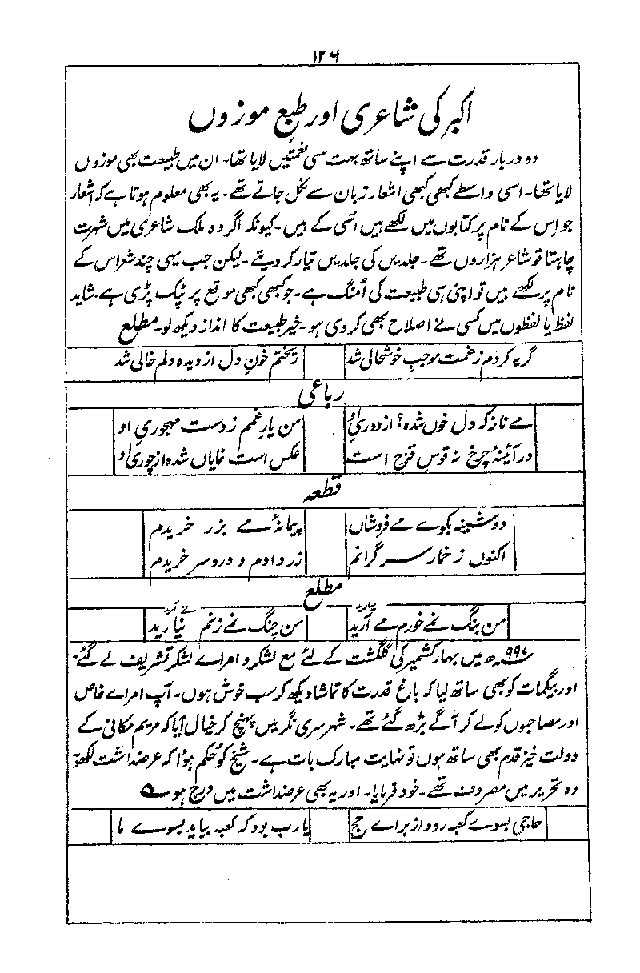 ۱۲۶
اکبر کی شاعری اور طبع موزوں
وہ دربار قدرت سے اپنے ساتھ بہت سی نعمتیں لایا تھا۔ ان میں طبیعت بھی موزوں
لایا تھا۔ اسی واسطے کبھی کبھی اشعار زبان سے نکل جاتے تھے۔ یہ بھی معلوم ہوتا ہے کہ اشعار
جو اس کے نام پر کتابوں میں لکھے ہیں اسی کے ہیں۔ کیونکہ اگر وہ ملک شاعری میں شہرت
چاہتا تو شاعر ہزاروں تھے۔ جلدیں کی جلدیں تیار کر دیتے۔ لیکن جب یہی چند شعر اس کے
نام پر لکھے ہیں تو اپنی ہی طبیعت کی امنگ ہے۔ جو کبھی کبھی موقع پر ٹپک پڑی ہے۔ شاید
لفظ یا لفظوں میں کسی نے اصلاح بھی کر دی ہو۔ خیر طبیعت کا انداز دیکھ لو۔ مطلع
گریہ کردم ز غمت موجب خوشحالی شد ریختم خون دل از دیدہ دلم خالی شد
رباعی
مے ناز کہ دل خوں شدہ؟ از دوری او من یار غم ز دست مہجوری او
در آئینۂ چرخ نہ قوس قزح است عکس است نمایاں شدہ از چوری او
قطعہ
دوشینہ بکوے مے فروشاں پیمانۂ مے بزر خریدم
اکنوں ز خمار سر گرانم زر دادم و درد سر خریدم
مطلع
من بنگ نمے خورم مے آرید من چنگ نمے زنم نے آرید
۹۹۷ھ میں بہار کشمیر کی گلگشت کے لئے مع لشکر و امراے لشکر تشریف لے گئے۔
اور بیگمات کو بھی ساتھ لیا کہ باغ قدرت کا تماشا دیکھ کر سب خوش ہوں۔ آپ امراے خاص
اور مصاحبوں کو لے کر آگے بڑھ گئے تھے۔ شہر سری نگر میں پہنچ کر خیال آیا کہ مریم مکانی کے
دولت خیز قدم بھی ساتھ ہوں تو نہایت مبارک بات ہے۔ شیخ کو حکم ہؤا کہ عرضداشت لکھو۔
وہ تحریر میں مصروف تھے۔ خود فرمایا۔ اور یہ بھی عرضداشت میں درج ہو سہ
حاجی بسوے کعبہ رود از براے حج یا رب بود کہ کعبہ بیاید بسوے ما